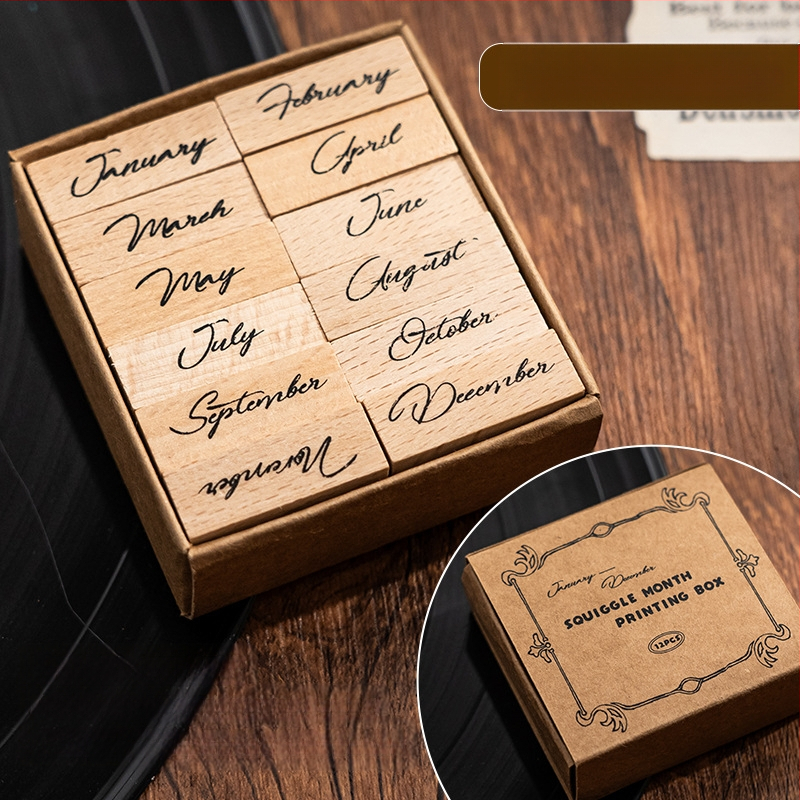 January
February
March
April
May
June
July
August
September
October
November
December
January — December
SQUIGGLE MONTH
PRINTING BOX
12PCS